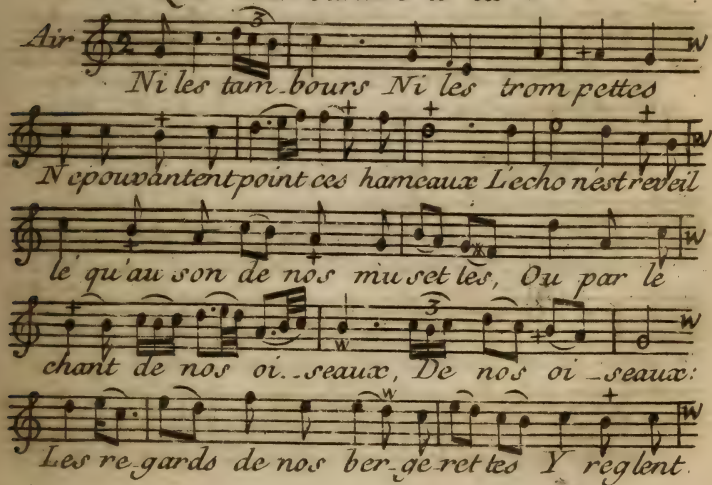 Air
Ni les tam-bours Ni les trom pettes
N'epouvantent point ces hameaux L'echo n'est reveil
lé qu'au son de nos mu set tes, Ou par le
chant de nos oi-seaux, De nos oi-seaux:
Les re-gards de nos ber-ge-ret tes Y reglent